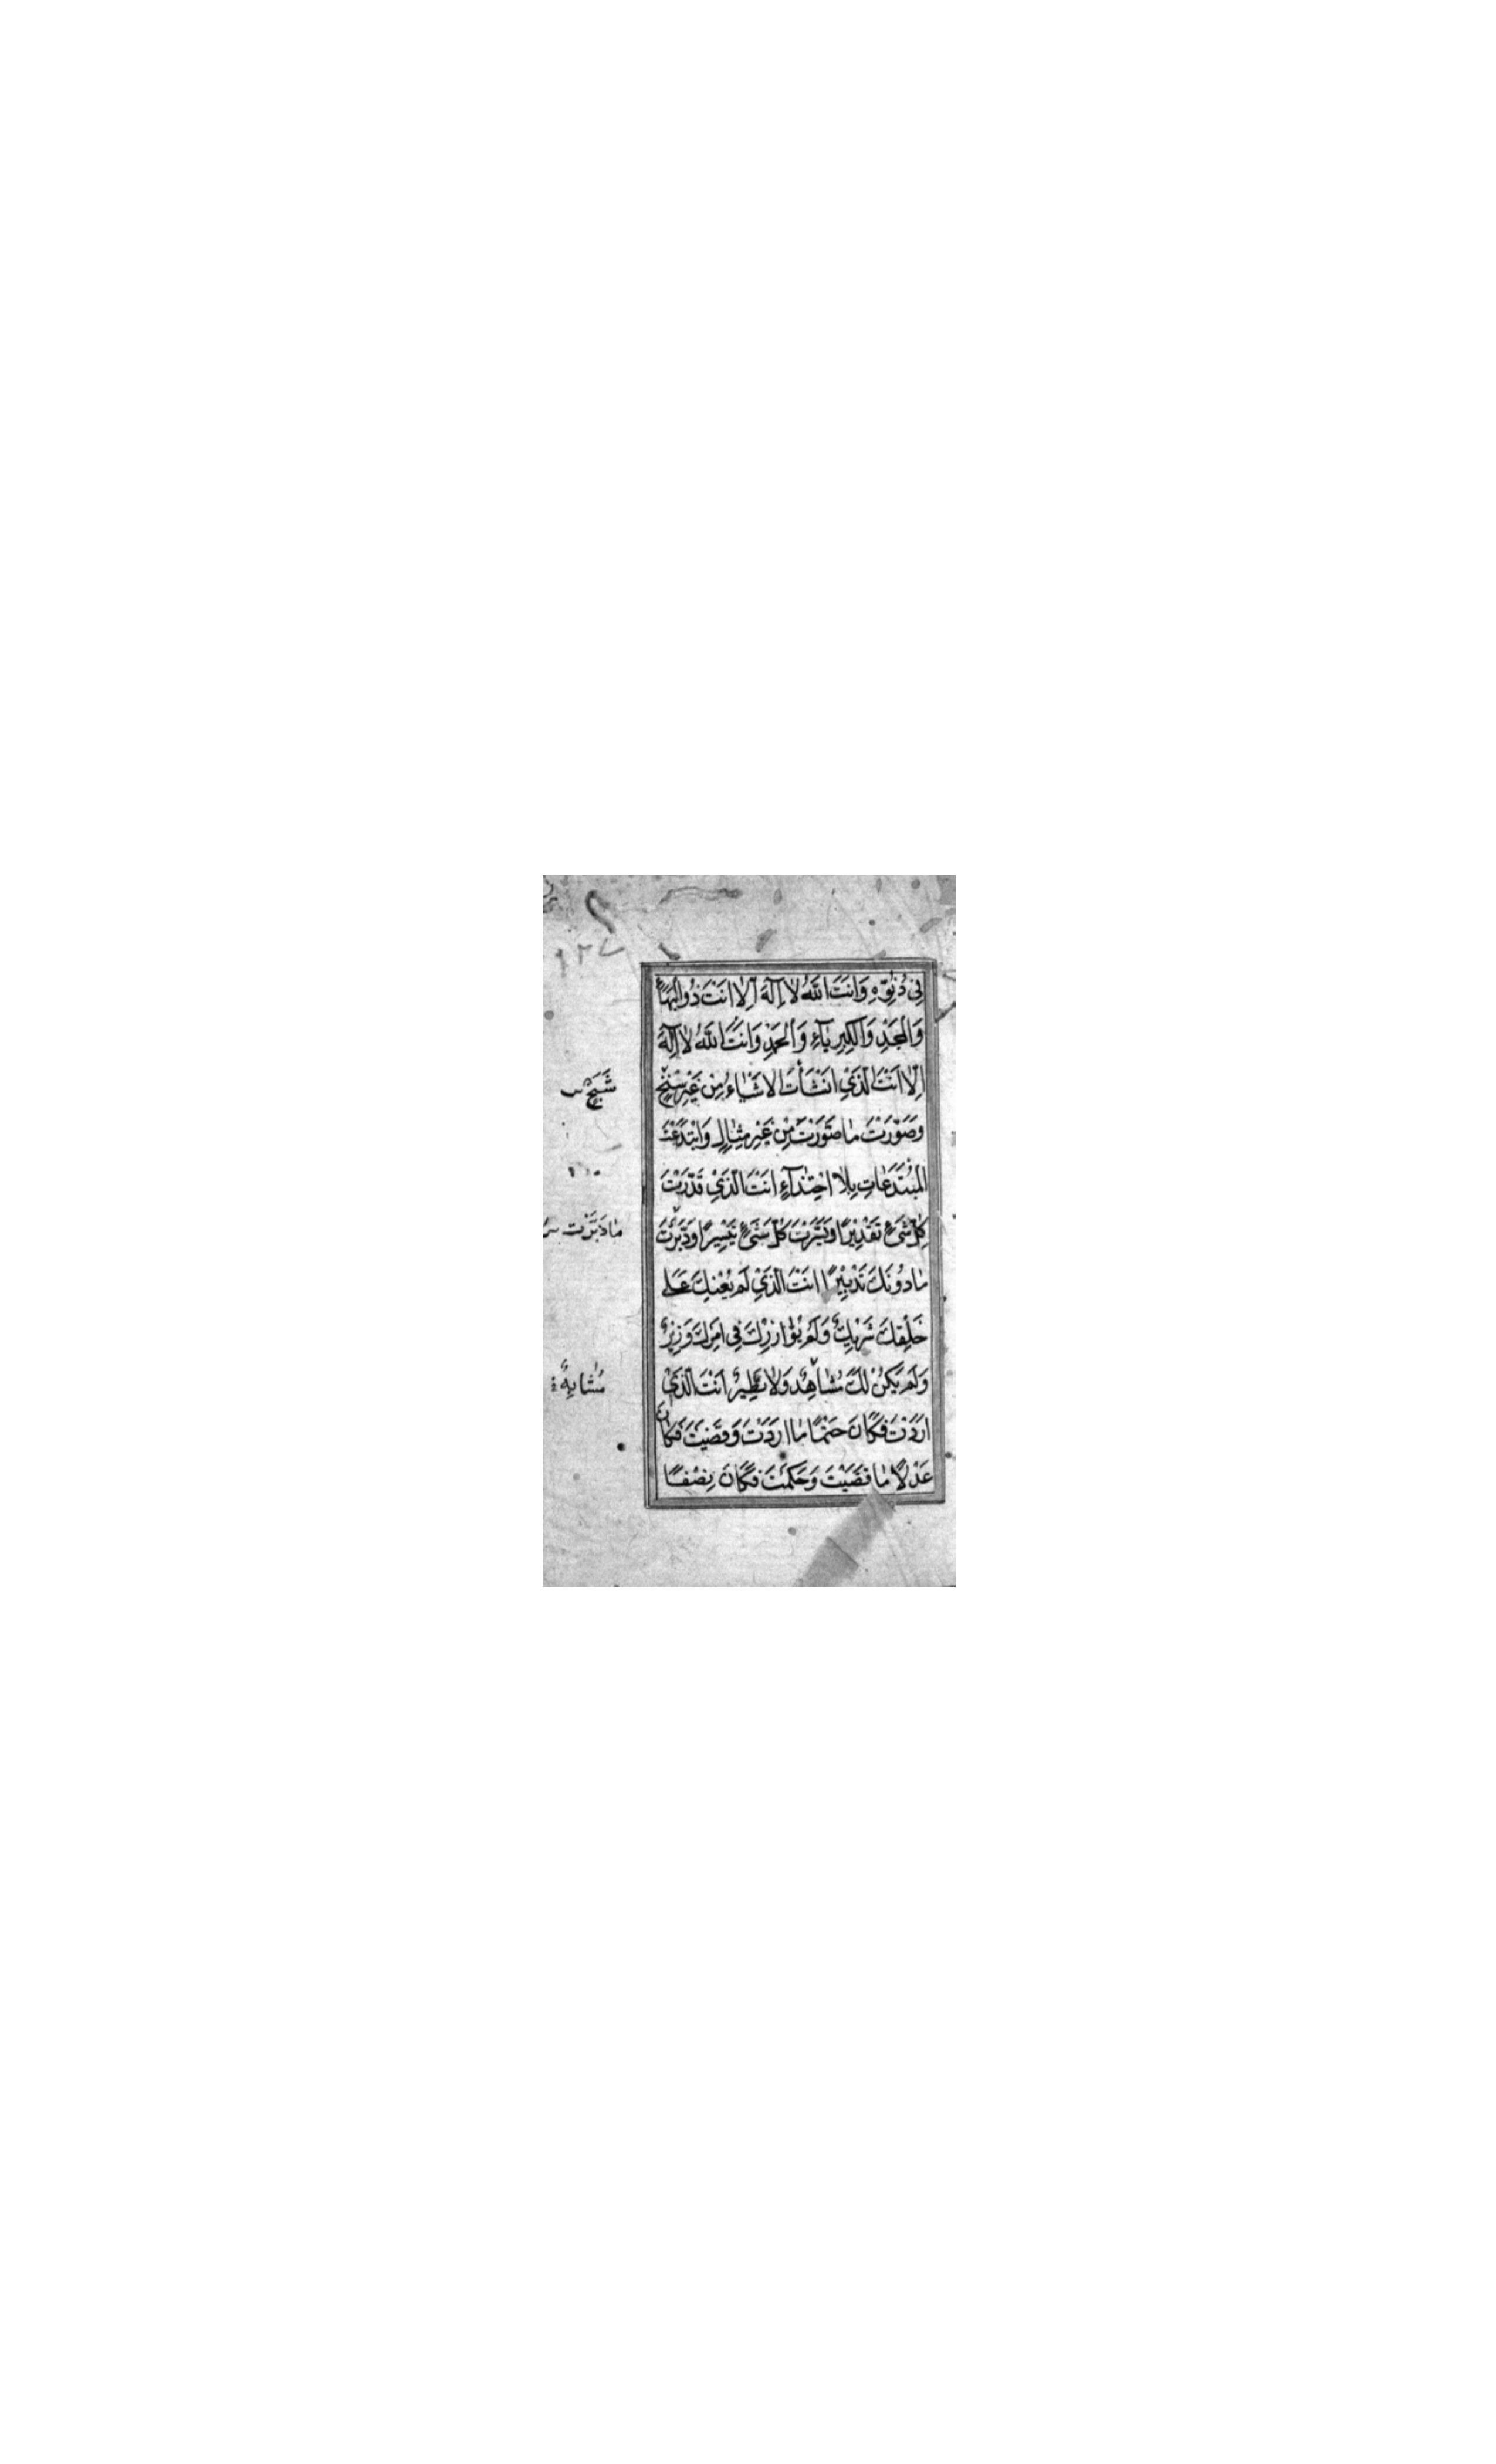 فِي دُنُوِّهِ وَاَنْتَ اللهُ لٰا اِلٰهَ اِلّٰا اَنْتَ ذُو الْبَهَاءِ
وَالْمَجْدِ وَالْكِبْرِيٰآءِ وَالْحَمْدِ وَاَنْتَ اللهُ لٰا اِلٰهَ
اِلّٰا اَنْتَ الَّذِيْ اَنْشَأْتَ الْاَشْيٰاءَ مِنْ غَيْرِ سِنْخٍ
وَصَوَّرْتَ مٰا صَوَّرْتَ مِنْ غَيْرِ مِثٰالٍ وَابْتَدَعْتَ
الْمُبْتَدَعٰاتِ بِلٰا احْتِذٰآءٍ اَنْتَ الَّذِيْ قَدَّرْتَ
كُلَّ شَيْءٍ تَقْدِيْرًا وَيَسَّرْتَ كُلَّ شَيْءٍ تَيْسِيْرًا وَدَبَّرْتَ
مٰا دُوْنَكَ تَدْبِيْرًا اَنْتَ الَّذِيْ لَمْ يُعِنْكَ عَلٰى
خَلْقِكَ شَرِيْكٌ وَلَمْ يُؤٰازِرْكَ فِي اَمْرِكَ وَزِيْرٌ
وَلَمْ يَكُنْ لَكَ مُشٰاهِدٌ وَلٰا نَظِيْرٌ اَنْتَ الَّذِيْ
اَرَدْتَ فَكٰانَ حَتْمًا مٰا اَرَدْتَ وَقَضَيْتَ فَكٰانَ
عَدْلًا مٰا قَضَيْتَ وَحَكَمْتَ فَكٰانَ نِصْفًا
١٢٧
شَبَحٍ
مٰا دَبَّرْتَ
مُشٰابِهٌ